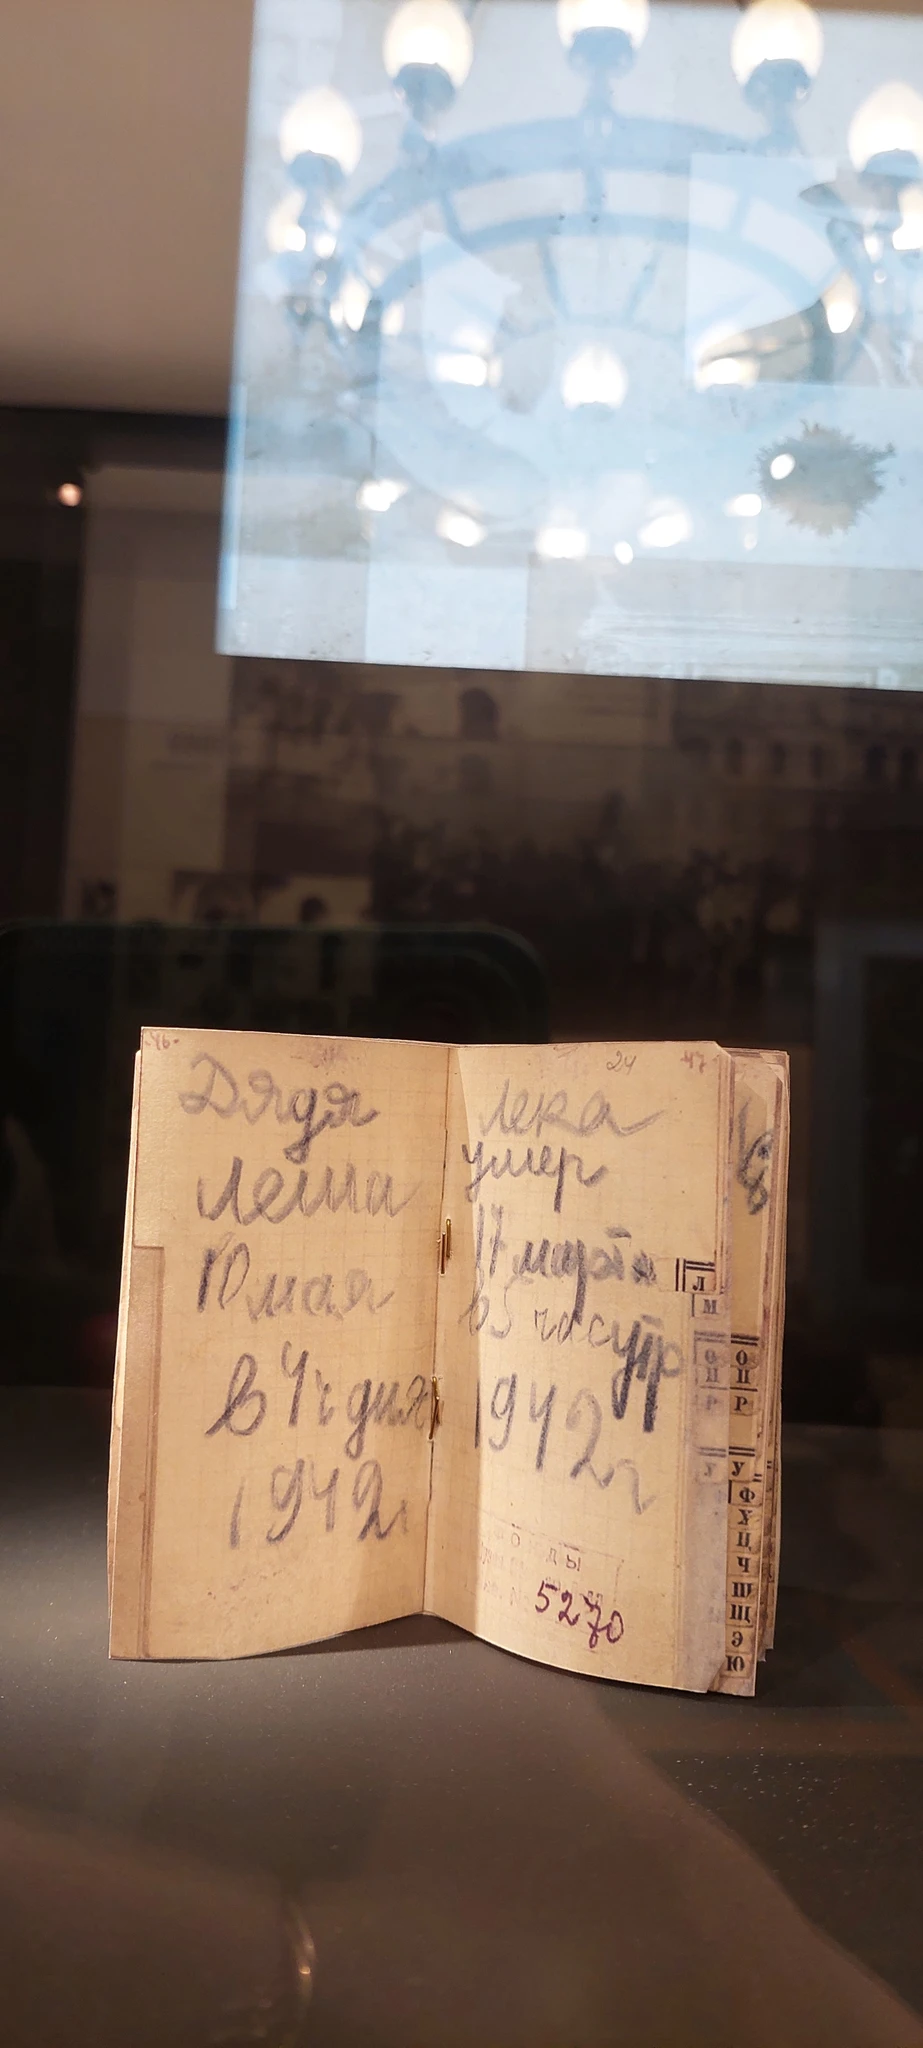 Дядя
Леша
10 мая
в 4 ч дня
1942 г
24
47
Лека
умер
17 марта
в 5 часутр
1942 г
5270
Л
М
О
П
Р
У
О
П
Р
У
Ф
Х
Ц
Ч
Ш
Щ
Э
Ю